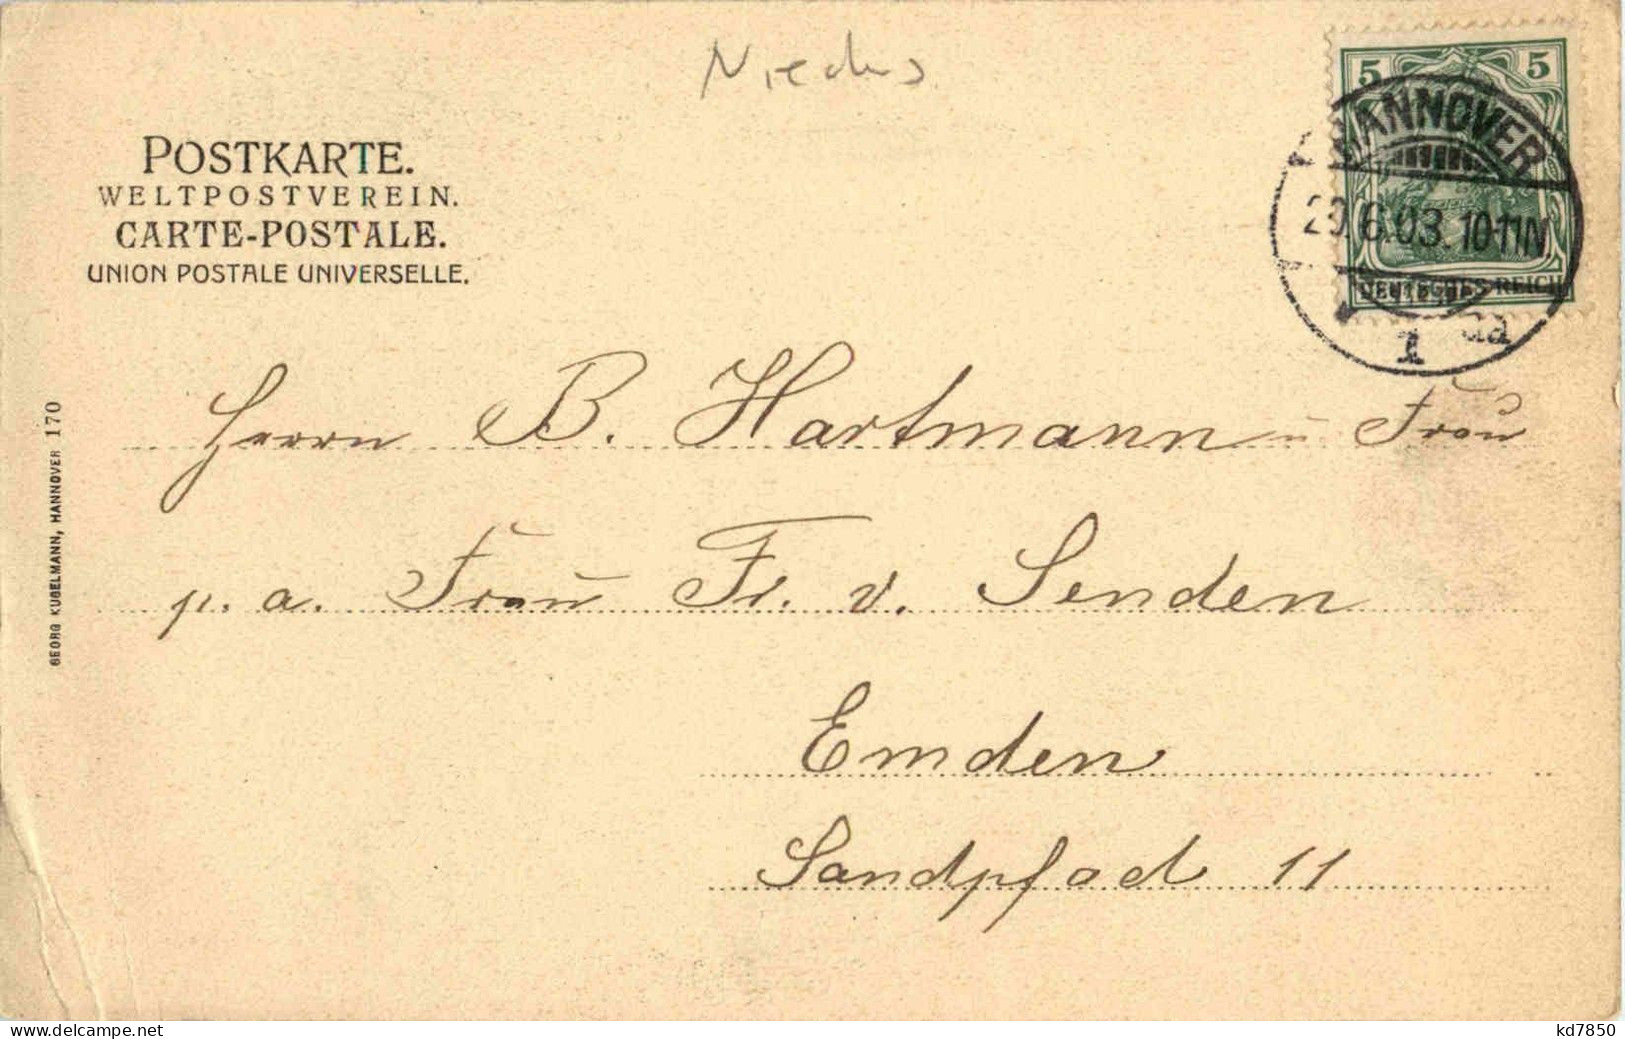 5 5
HANNOVER
29.6.03. 10-11N.
DEUTSCHES REICH
1
POSTKARTE.
WELTPOSTVEREIN.
CARTE-POSTALE.
UNION POSTALE UNIVERSELLE.
GEORG KUGELMANN, HANNOVER 170
Herrn B. Hartmann u Frau
p. a. Frau Fr. v. Senden
Emden
Sandpfad 11
www.delcampe.net
kd7850